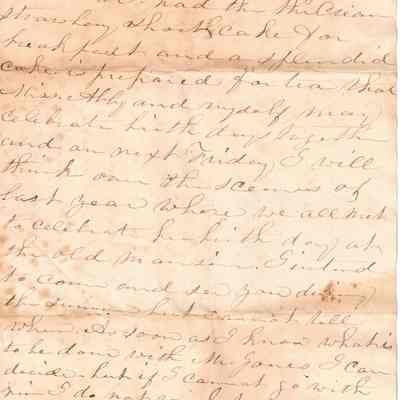 had the
strawberry short cake for
breakfast and a splendid
cake is prepared for tea that
Miss Abby and myself may
celebrate birth days together
and on next Friday I will
think over the sceenes of
last year where we all met
to celebrate her birth day at
the old mansion. I intend
to come and see you during
the summer but cannot tell
when. As soon as I know what is
to be done with Mr Jones I can
decide but if I cannot go with
him I do not